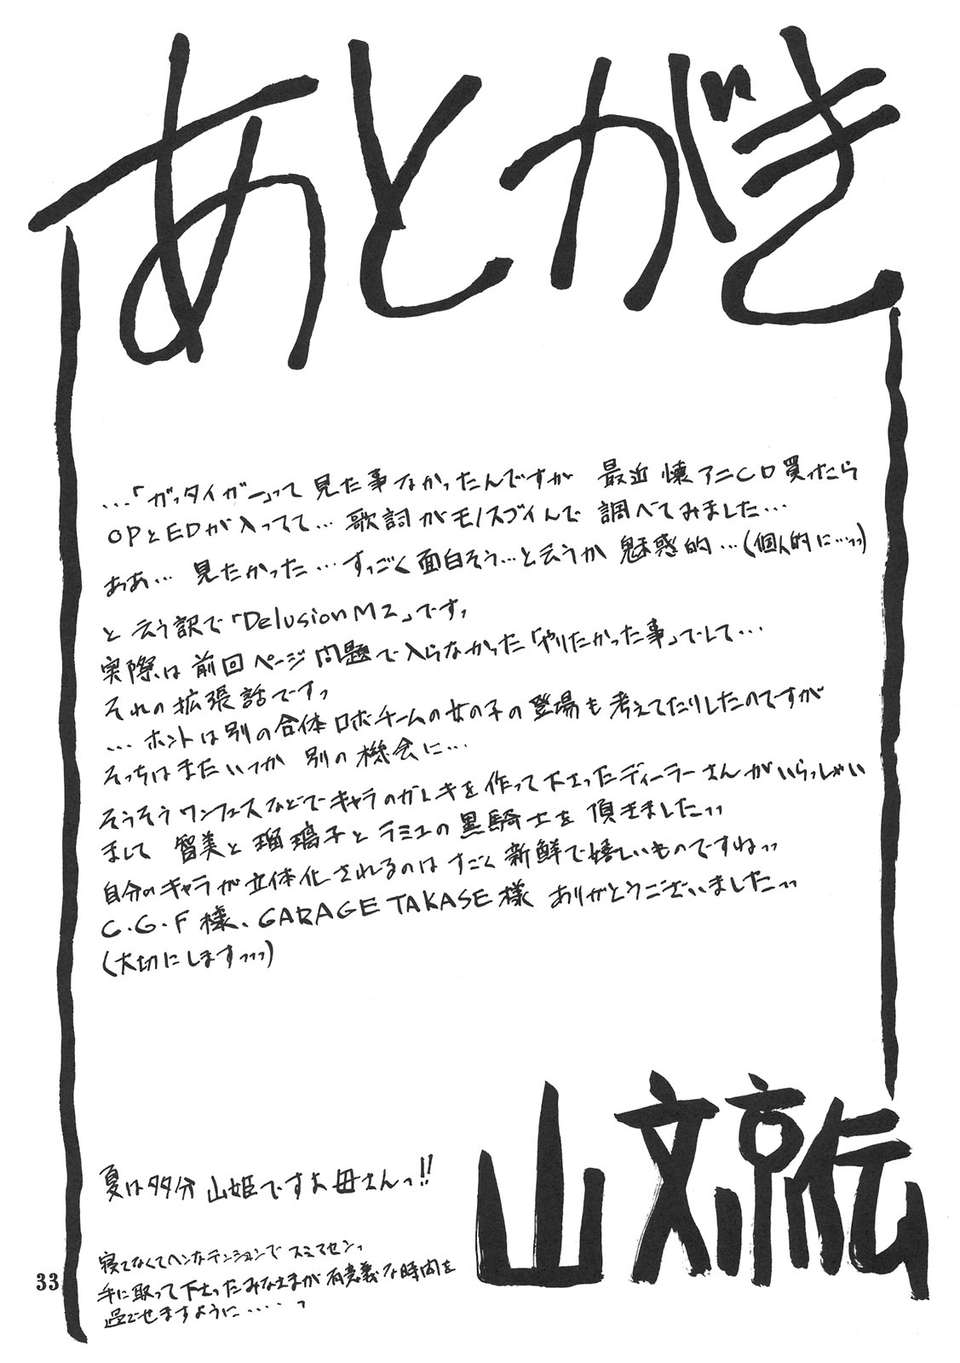 あとがき
…「ガッタイガー」って見た事なかったんですが 最近 懐アニCD買ったら
OPとEDが入ってて…歌詞がモノスゴイんで 調べてみました…
ああ…見たかった…すっごく面白そう…と云うか 魅惑的…(個人的に…っっ)
と云う訳で「Delusion M2」ですっ
実際は前回ページ問題で入らなかった「やりたかった事」でして…
それの拡張話ですっ
…ホントは別の合体ロボチームの女の子の登場も考えてたりしたのですが
そっちはまたいつか 別の機会に…
そうそうワンフェスなどでキャラのガレキを作って下さったディーラーさんがいらっしゃい
まして 智美と瑠璃子とラミュの黒騎士を 頂きましたっっ
自分のキャラが立体化されるのはすごく新鮮で嬉しいものですねっっ
C.G.F様、GARAGE TAKASE様 ありがとうございましたっっ
(大切にしますっっっ)
夏は多分 山姫ですよ母さんっ!!
山文京伝
寝てなくてヘンなテンションで スミマセンっ
手に取って下さったみなさまが 有意義な時間を
過ごせますように……っ
33